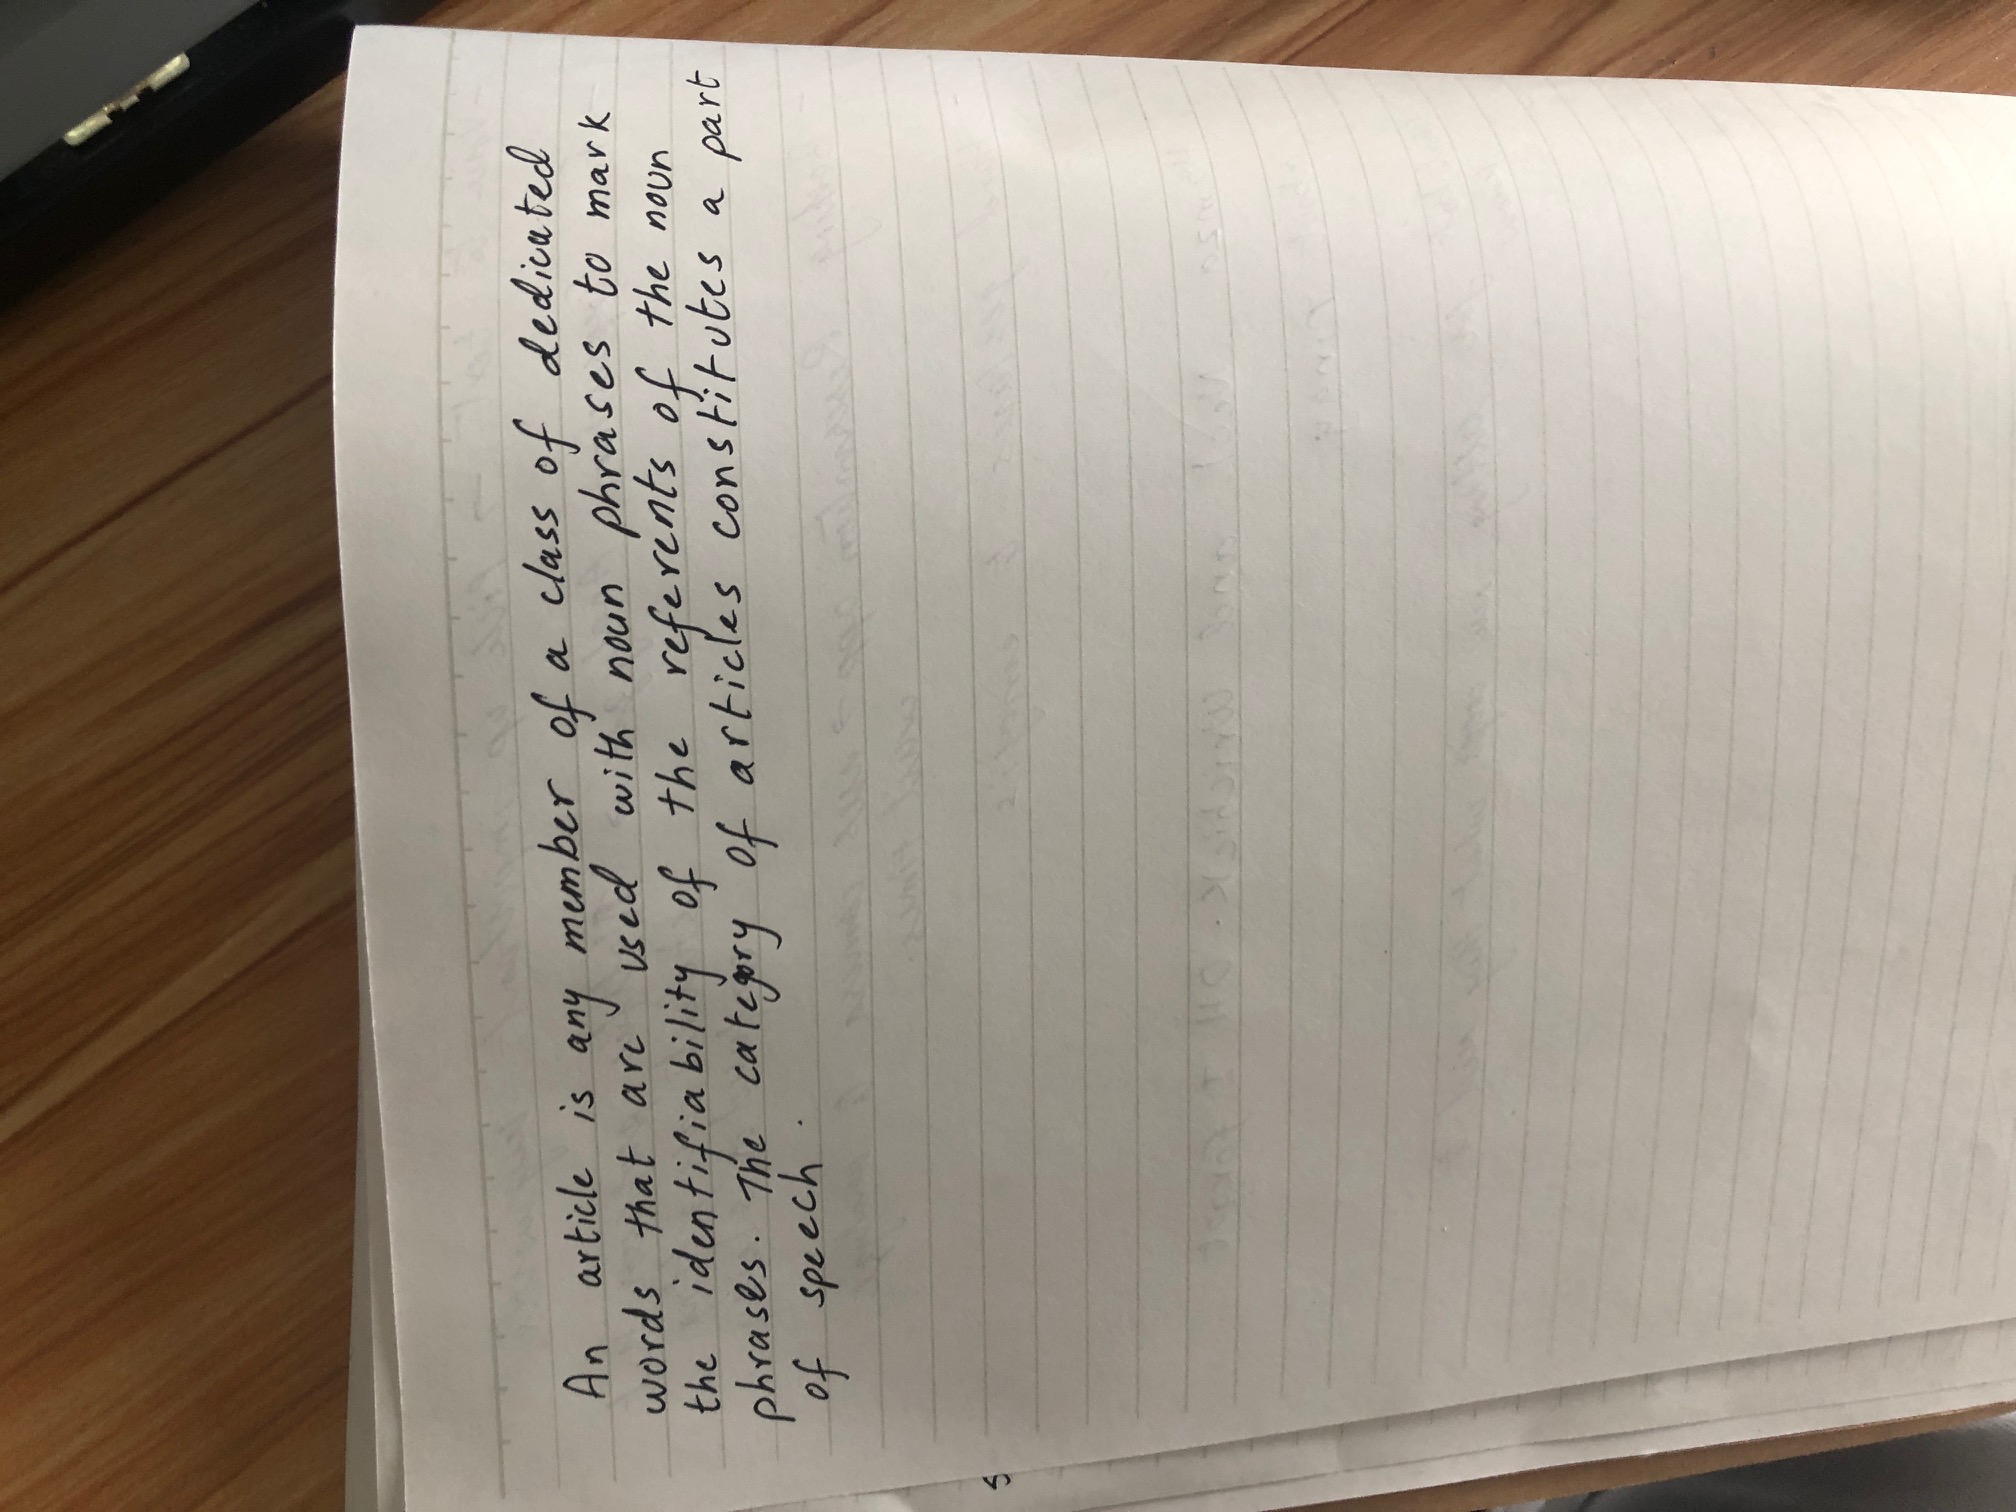 An article is any member of a class of dedicated
words that are used with noun phrases to mark
the identifiability of the referents of the noun
phrases. The category of articles constitutes a part
of speech.